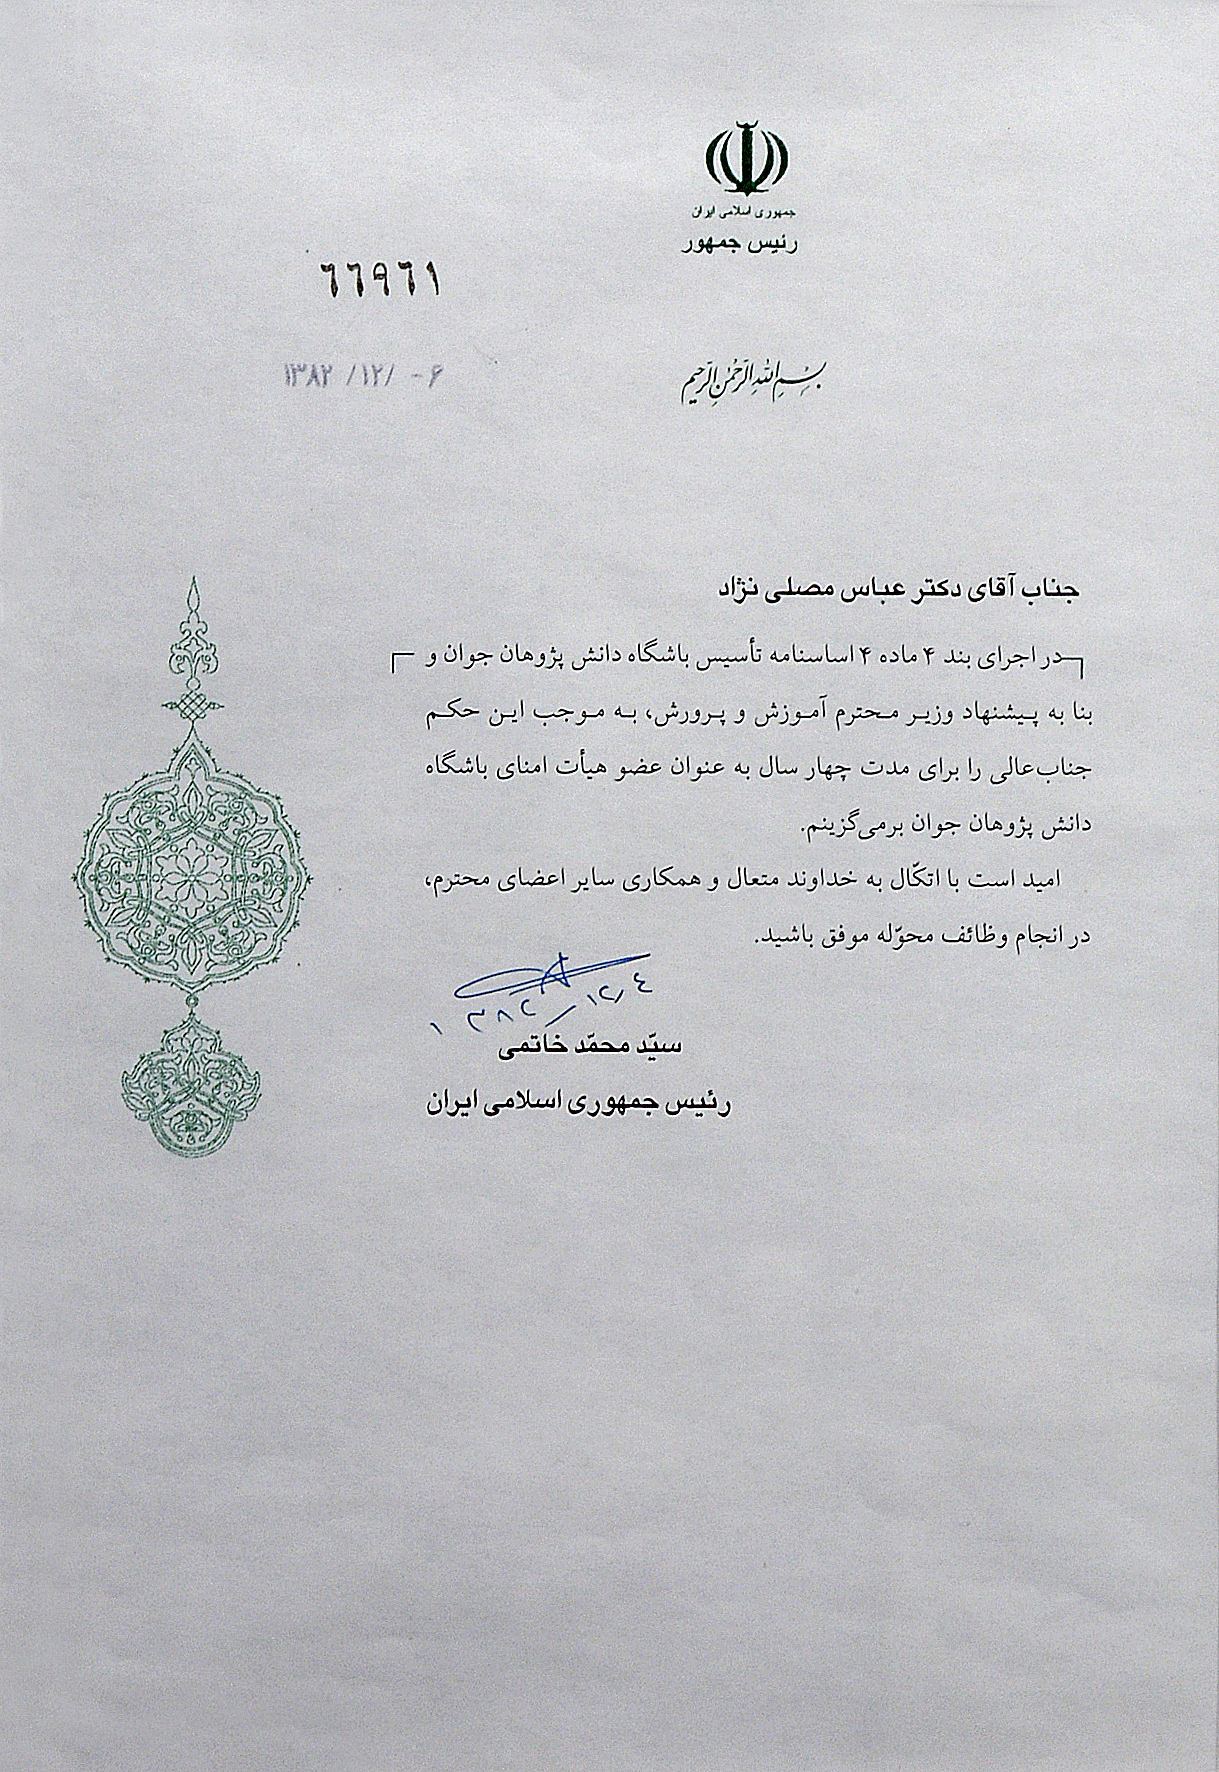 جمهوری اسلامی ایران
رئیس جمهور
٦٦٩٦١
۱۳۸۲ /۱۲/ -۶
بسم الله الرحمن الرحیم
جناب آقای دکتر عباس مصلی نژاد
در اجرای بند ۴ ماده ۴ اساسنامه تأسیس باشگاه دانش پژوهان جوان و
بنا به پیشنهاد وزیر محترم آموزش و پرورش، به موجب این حکم
جناب‌عالی را برای مدت چهار سال به عنوان عضو هیأت امنای باشگاه
دانش پژوهان جوان برمی‌گزینم.
امید است با اتکّال به خداوند متعال و همکاری سایر اعضای محترم،
در انجام وظائف محوّله موفق باشید.
۱۳۸۲/۱۲/٤
سیّد محمّد خاتمی
رئیس جمهوری اسلامی ایران